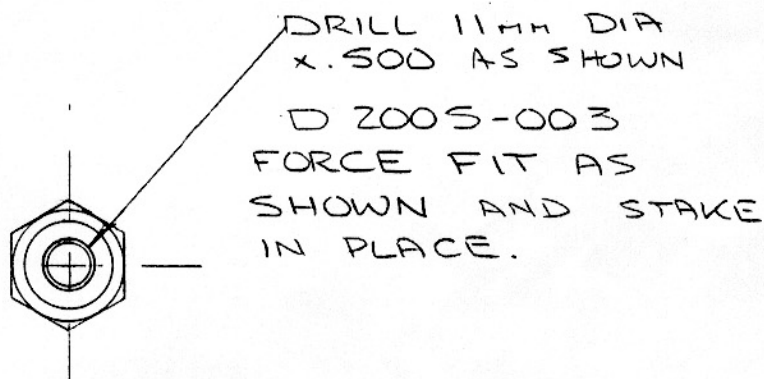 DRILL 11mm DIA
x .500 AS SHOWN
D 2005-003
FORCE FIT AS
SHOWN AND STAKE
IN PLACE.